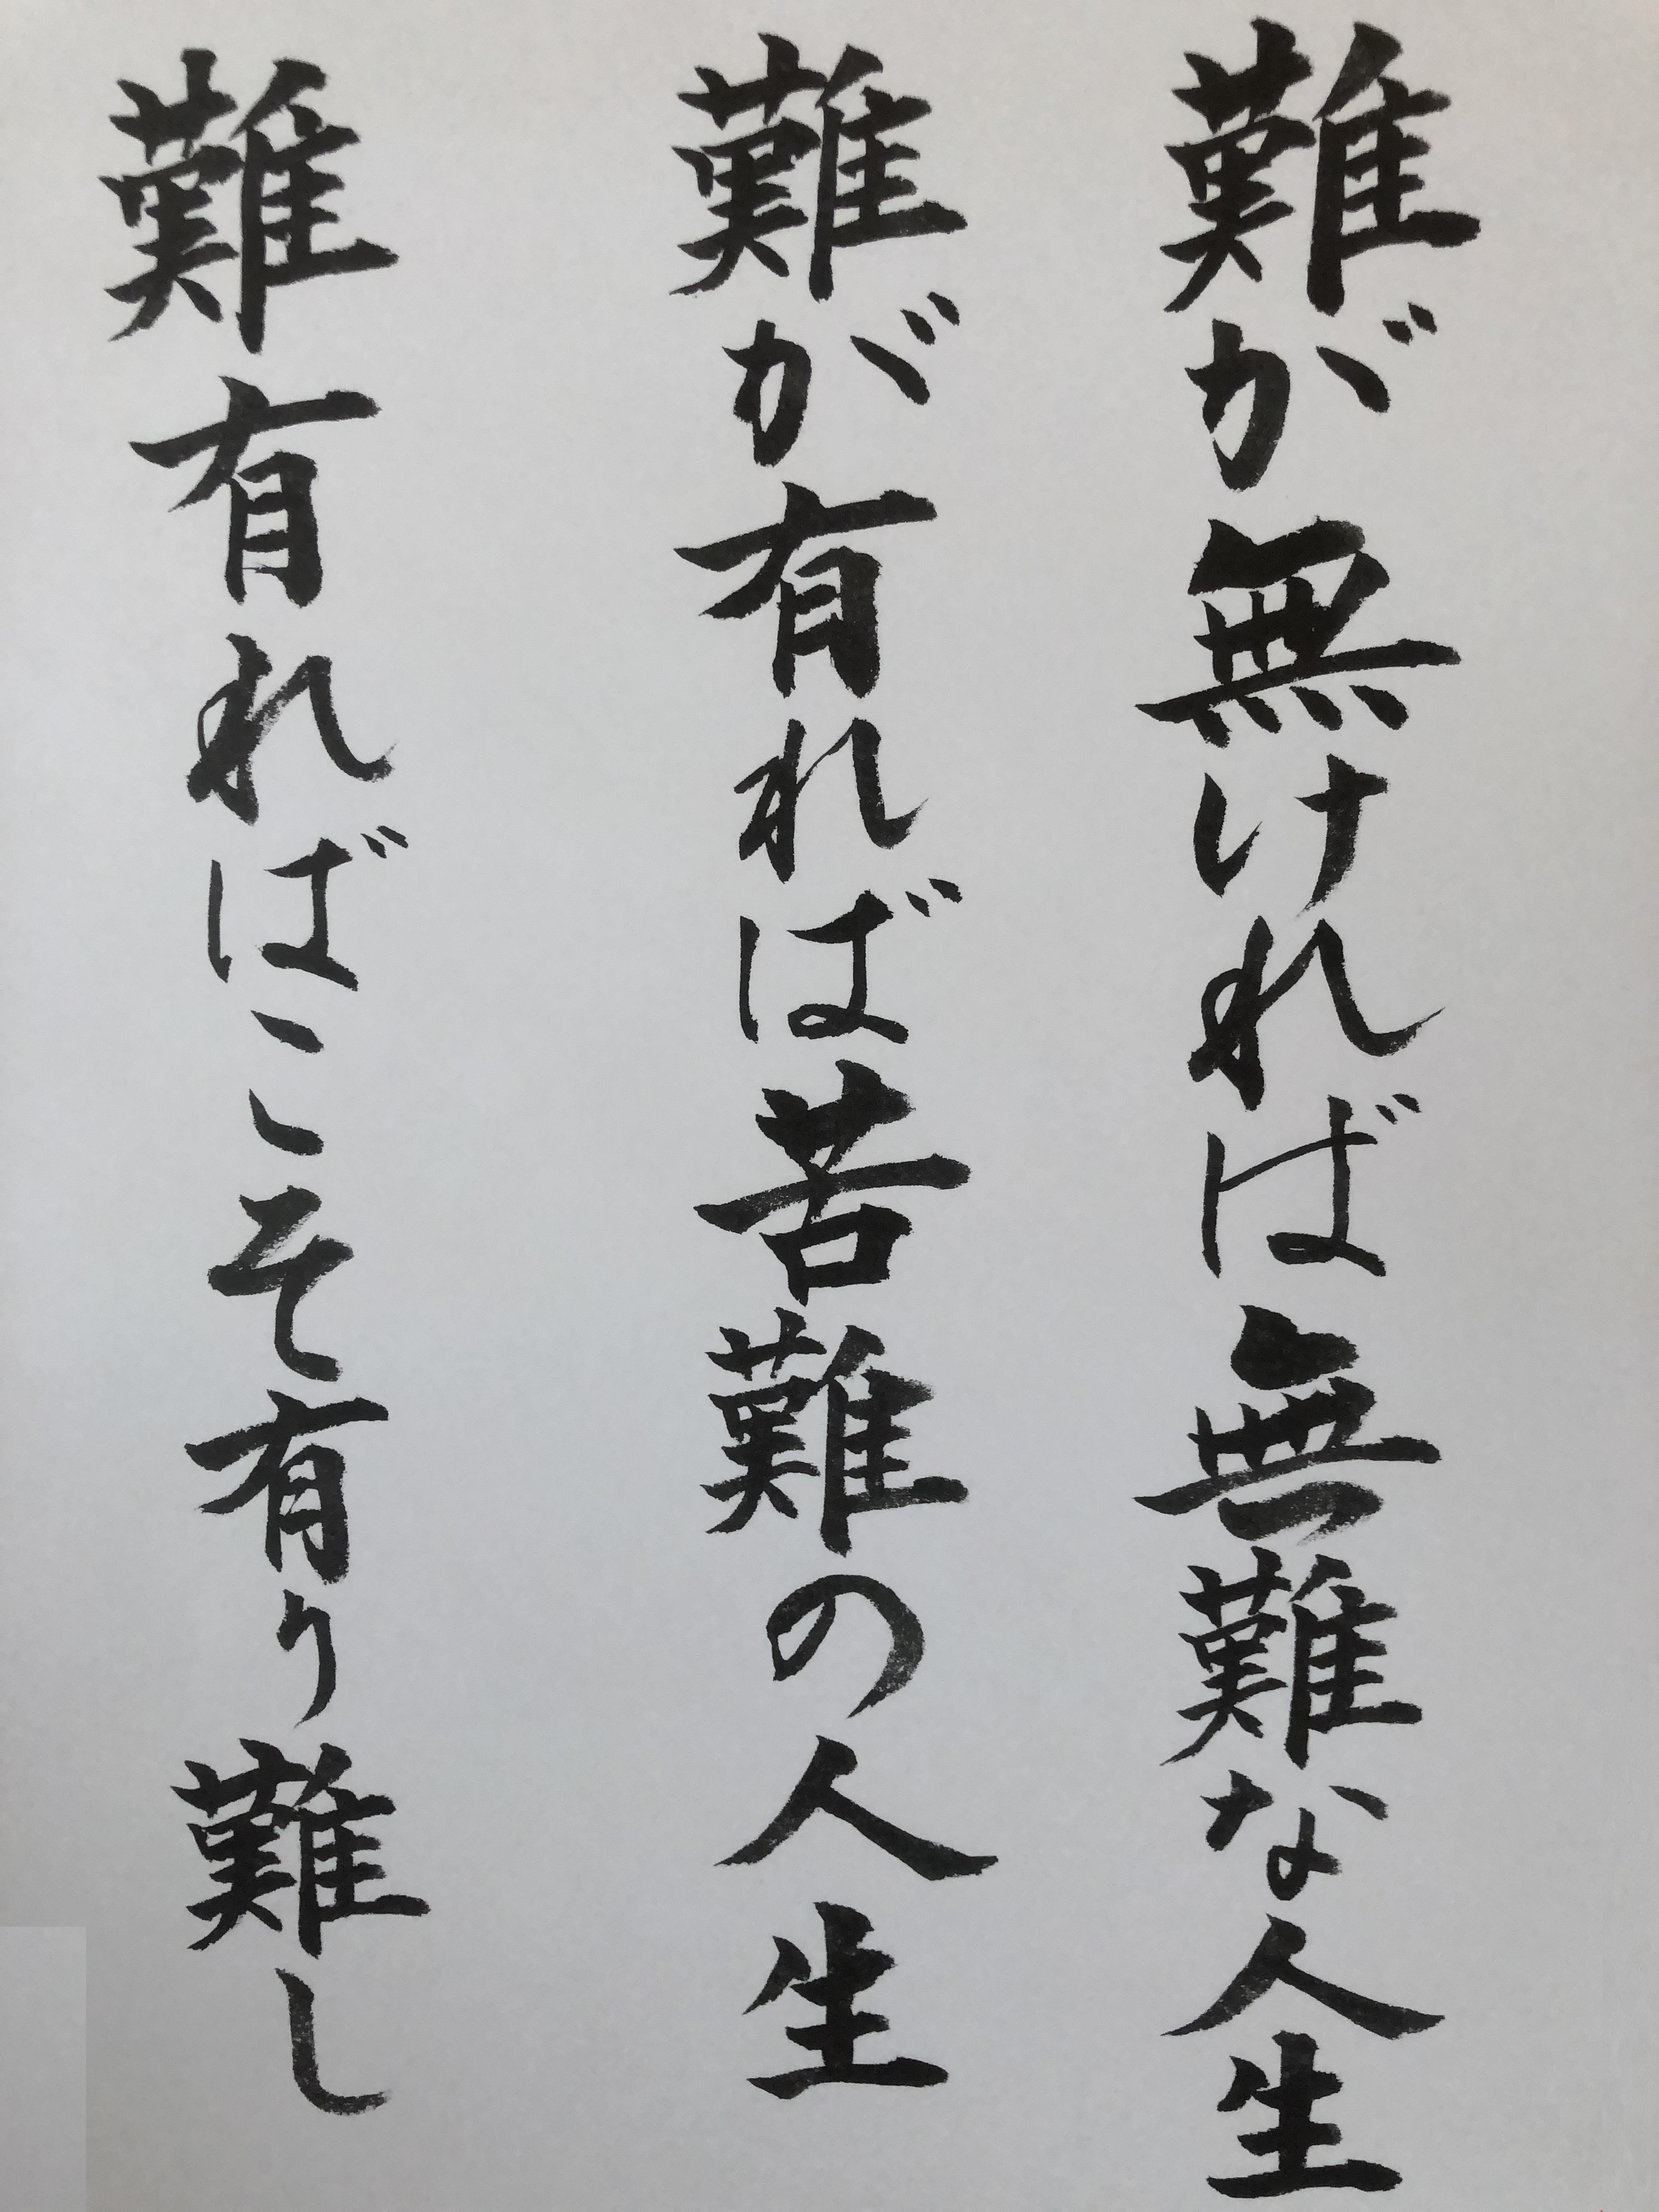 難が無ければ無難な人生
難が有れば苦難の人生
難有ればこそ有り難し